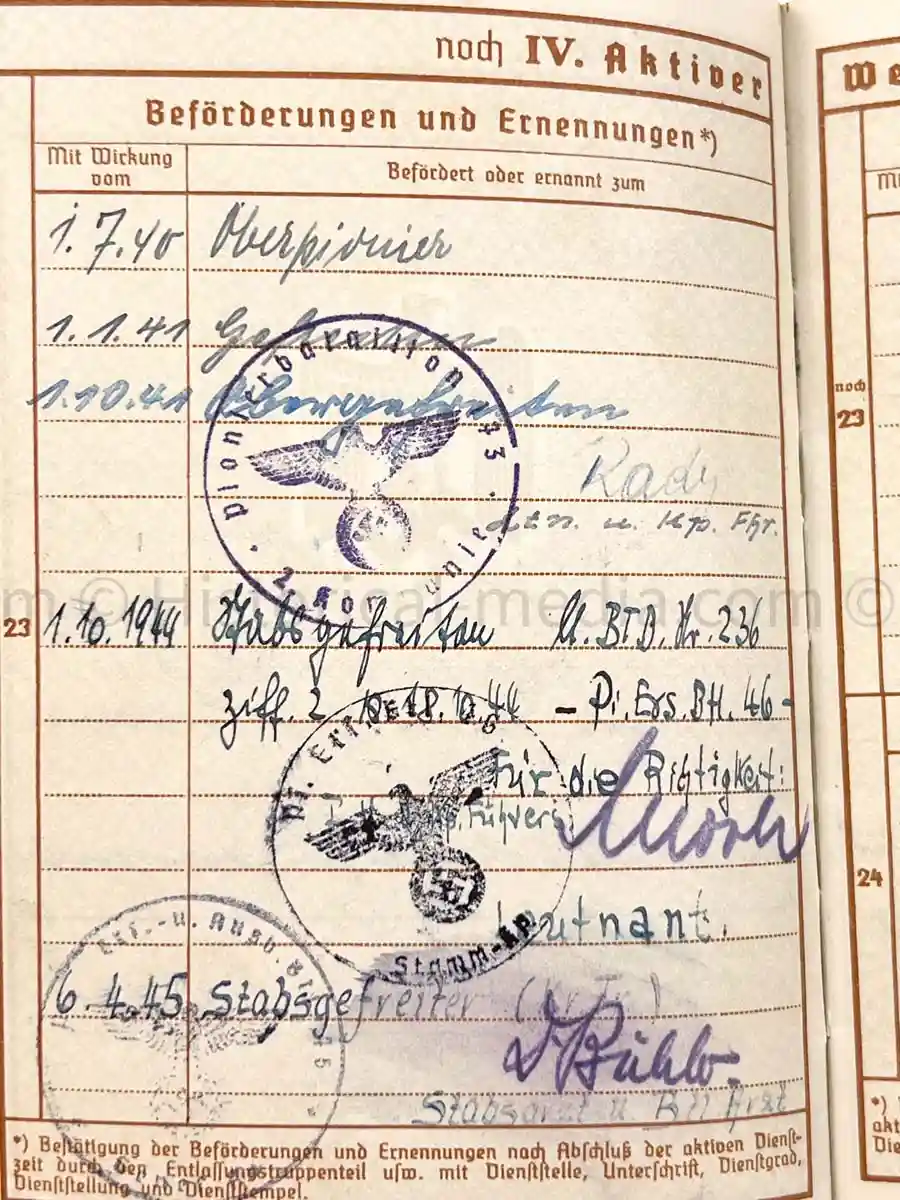 noch IV. Aktiver
Beförderungen und Ernennungen*)
Mit Wirkung vom
Befördert oder ernannt zum
1.7.40 Oberpionier
1.1.41 Gefreiten
1.10.41 Obergefreiten
Pionierbataillon 73
2. Kompanie
u. Kp. Fhr.
© Historical-media.com ©
23
1.10.1944 Stabsgefreiten Nr. 236
Ziff. 2 18.10.44 – Pi. Ers. Btl. 46 –
Für die Richtigkeit:
Führers
Pi. Ers. 46
Stamm-Kp.
Leutnant.
Ers.-u. Ausb. 
6.4.45 Stabsgefreiter
D. Bühler
Stabsarzt u. Btl. Arzt
*) Bestätigung der Beförderungen und Ernennungen nach Abschluß der aktiven Dienst-
zeit durch den Entlassungstruppenteil usw. mit Dienststelle, Unterschrift, Dienstgrad,
Dienststellung und Dienststempel.
We
noch
23
24
*)
akt
Die